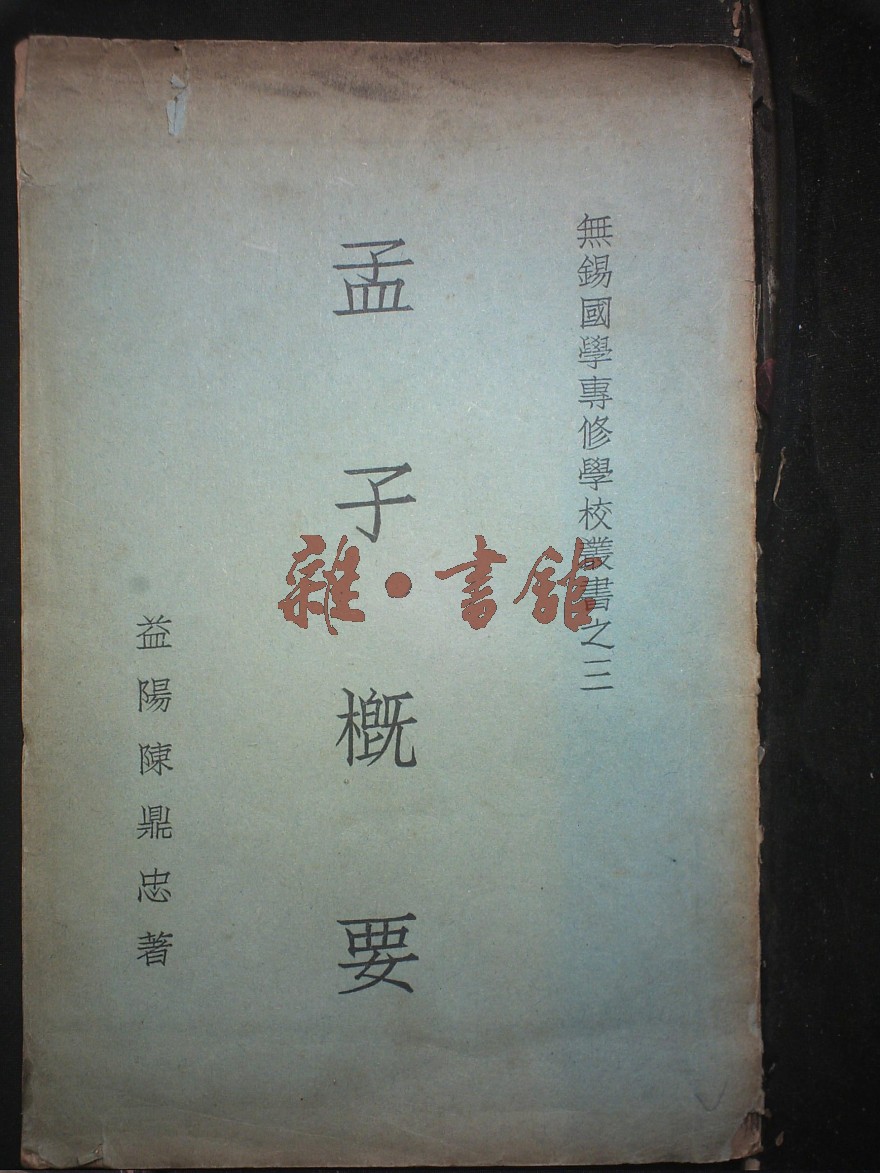 無錫國學專修學校叢書之三
孟子槪要
益陽陳鼎忠著
雜·書館